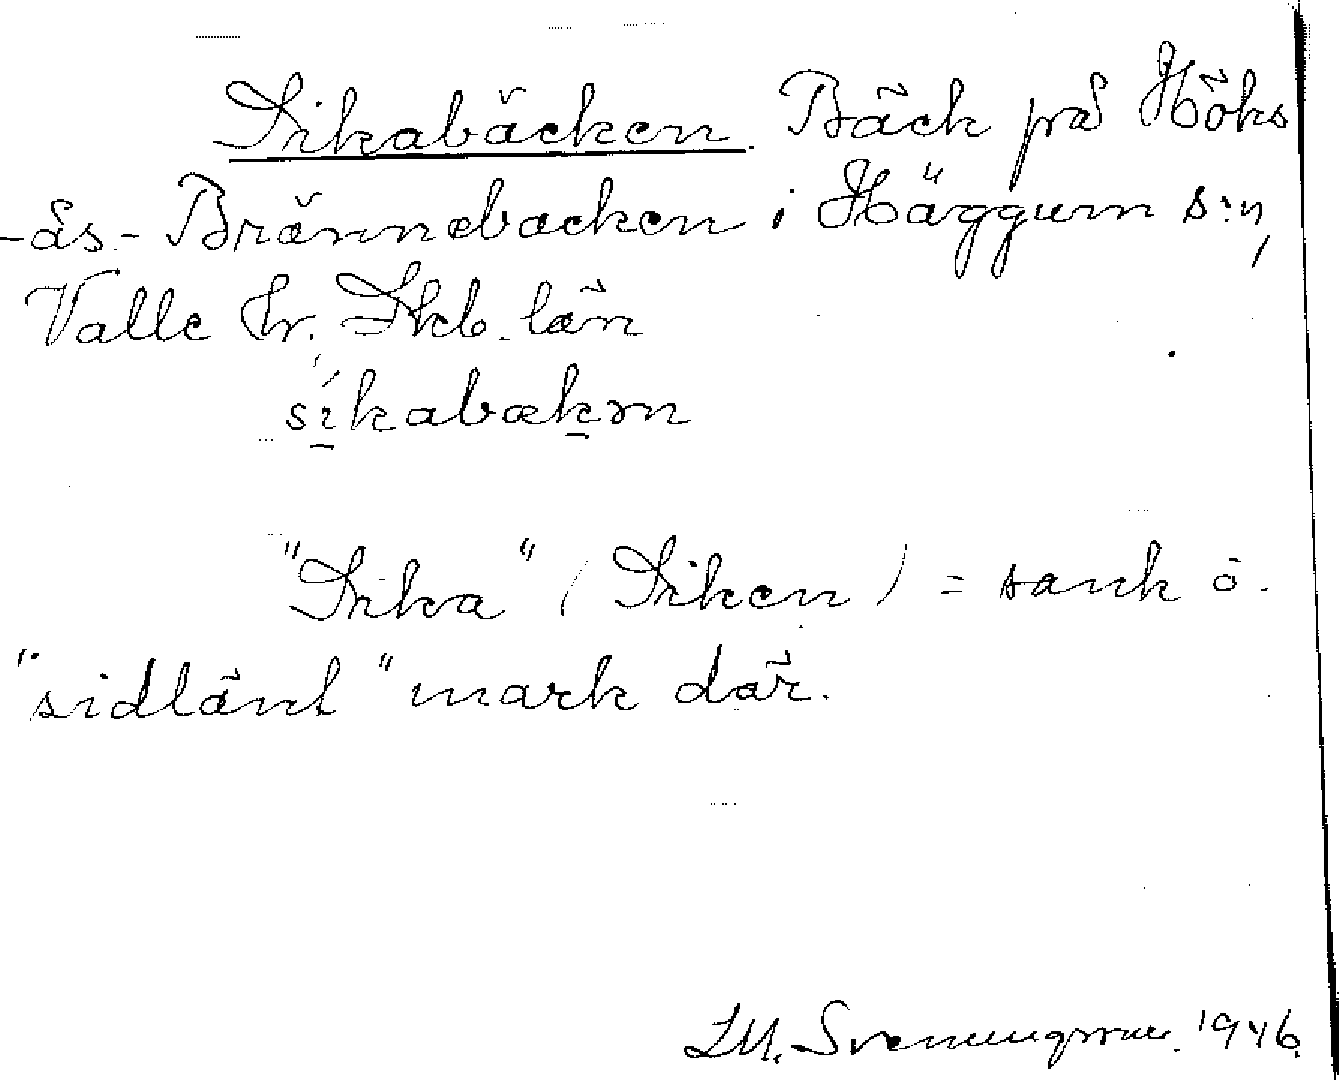 Sikabäcken. Bäck på Höks
-ås-Brännebacken i Häggum s:n,
Valle hr. Skb. län
síkabækɘn
"Sika" (Siken) = sank o.
"sidlänt" mark där.
Svenungsson. 1946.